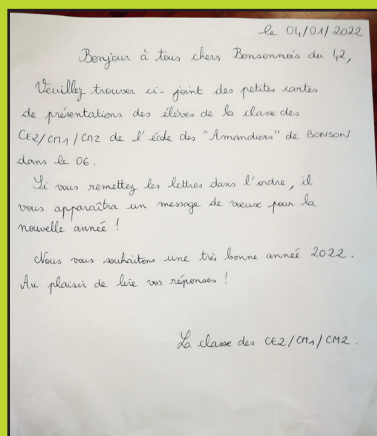 le 04/01/2022
Bonjour à tous chers Bonsonnais du 42,
Veuillez trouver ci-joint des petites cartes
de présentations des élèves de la classe des
CE2/CM1/CM2 de l'école des "Amandiers" de BONSON
dans le 06.
Si vous remettez les lettres dans l'ordre, il
vous apparaîtra un message de vœux pour la
nouvelle année !
Nous vous souhaitons une très bonne année 2022.
Au plaisir de lire vos réponses !
La classe des CE2/CM1/CM2.